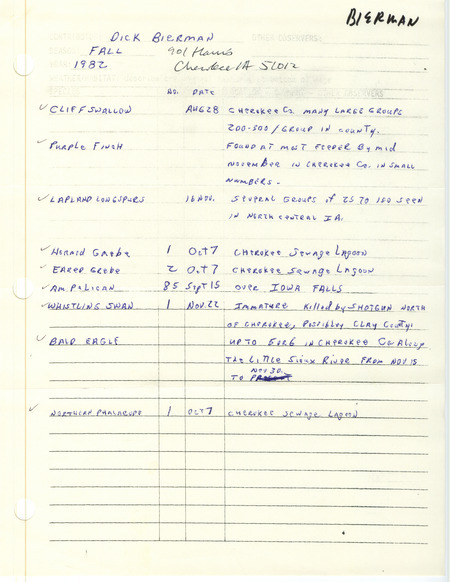 BIERMAN
DICK BIERMAN
FALL 901 Harris
1982 Cherokee IA 51012
NO. DATE
✓ CLIFF SWALLOW AUG 28 CHEROKEE CO. MANY LARGE GROUPS
200-500/GROUP IN COUNTY.
✓ PURPLE FINCH FOUND AT MOST FEEDER BY MID
NOVEMBER IN CHEROKEE CO. IN SMALL
NUMBERS.
✓ LAPLAND LONGSPURS 16 NOV. SEVERAL GROUPS OF 25 TO 150 SEEN
IN NORTH CENTRAL IA.
✓ HORNED GREBE 1 OCT 7 CHEROKEE SEWAGE LAGOON
✓ EARED GREBE 2 OCT 7 CHEROKEE SEWAGE LAGOON
✓ AM. PELICAN 85 SEPT 15 OVER IOWA FALLS
✓ WHISTLING SWAN 1 NOV. 22 IMMATURE KILLED BY SHOTGUN NORTH
OF CHEROKEE, POSSIBLEY CLAY COUTY.
✓ BALD EAGLE UP TO 5 OR 6 IN CHEROKEE CO ALONG
THE LITTLE SIOUX RIVER FROM NOV 15
NOV 30.
TO
✓ NORTHERN PHALAROPE 1 OCT 7 CHEROKEE SEWAGE LAGOON